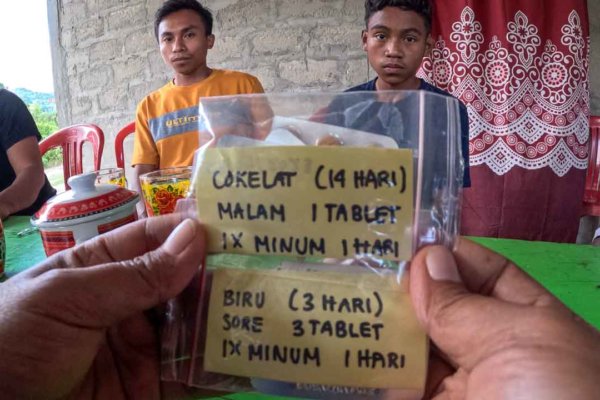 ULTIM
COKELAT (14 HARI)
MALAM 1 TABLET
1X MINUM 1 HARI
BIRU (3 HARI)
SORE 3 TABLET
1X MINUM 1 HARI